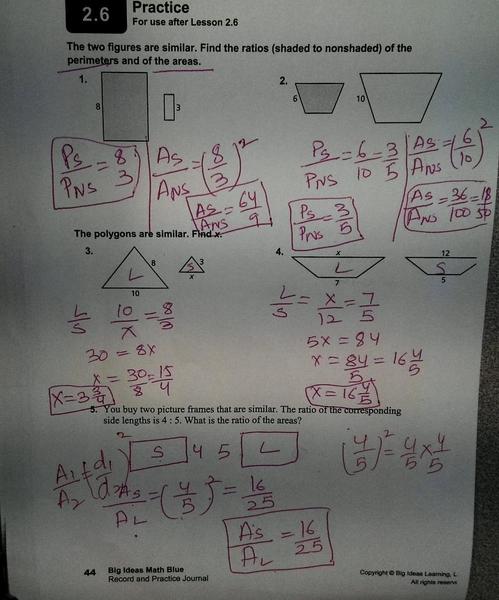 2.6 Practice
For use after Lesson 2.6
The two figures are similar. Find the ratios (shaded to nonshaded) of the
perimeters and of the areas.
1. 8 3
PS/PNS = 8/3
AS/ANS = (8/3)^2
AS/ANS = 64/9
2. 6 10
PS/PNS = 6/10 = 3/5
PS/PNS = 3/5
AS/ANS = (6/10)^2
AS/ANS = 36/100 = 18/50
The polygons are similar. Find x.
3. L 8 10 S 3 x
L/S 10/x = 8/3
30 = 8x
x = 30/8 = 15/4
x = 3 3/4
4. x L 7 12 S 5
L/S = x/12 = 7/5
5x = 84
x = 84/5 = 16 4/5
x = 16 4/5
5. You buy two picture frames that are similar. The ratio of the corresponding
side lengths is 4 : 5. What is the ratio of the areas?
S 4 5 L
A1/A2 = (d1/d2)^2
AS/AL = (4/5)^2 = 16/25
AS/AL = 16/25
(4/5)^2 = 4/5 x 4/5
44 Big Ideas Math Blue
Record and Practice Journal
Copyright © Big Ideas Learning, L
All rights reserv